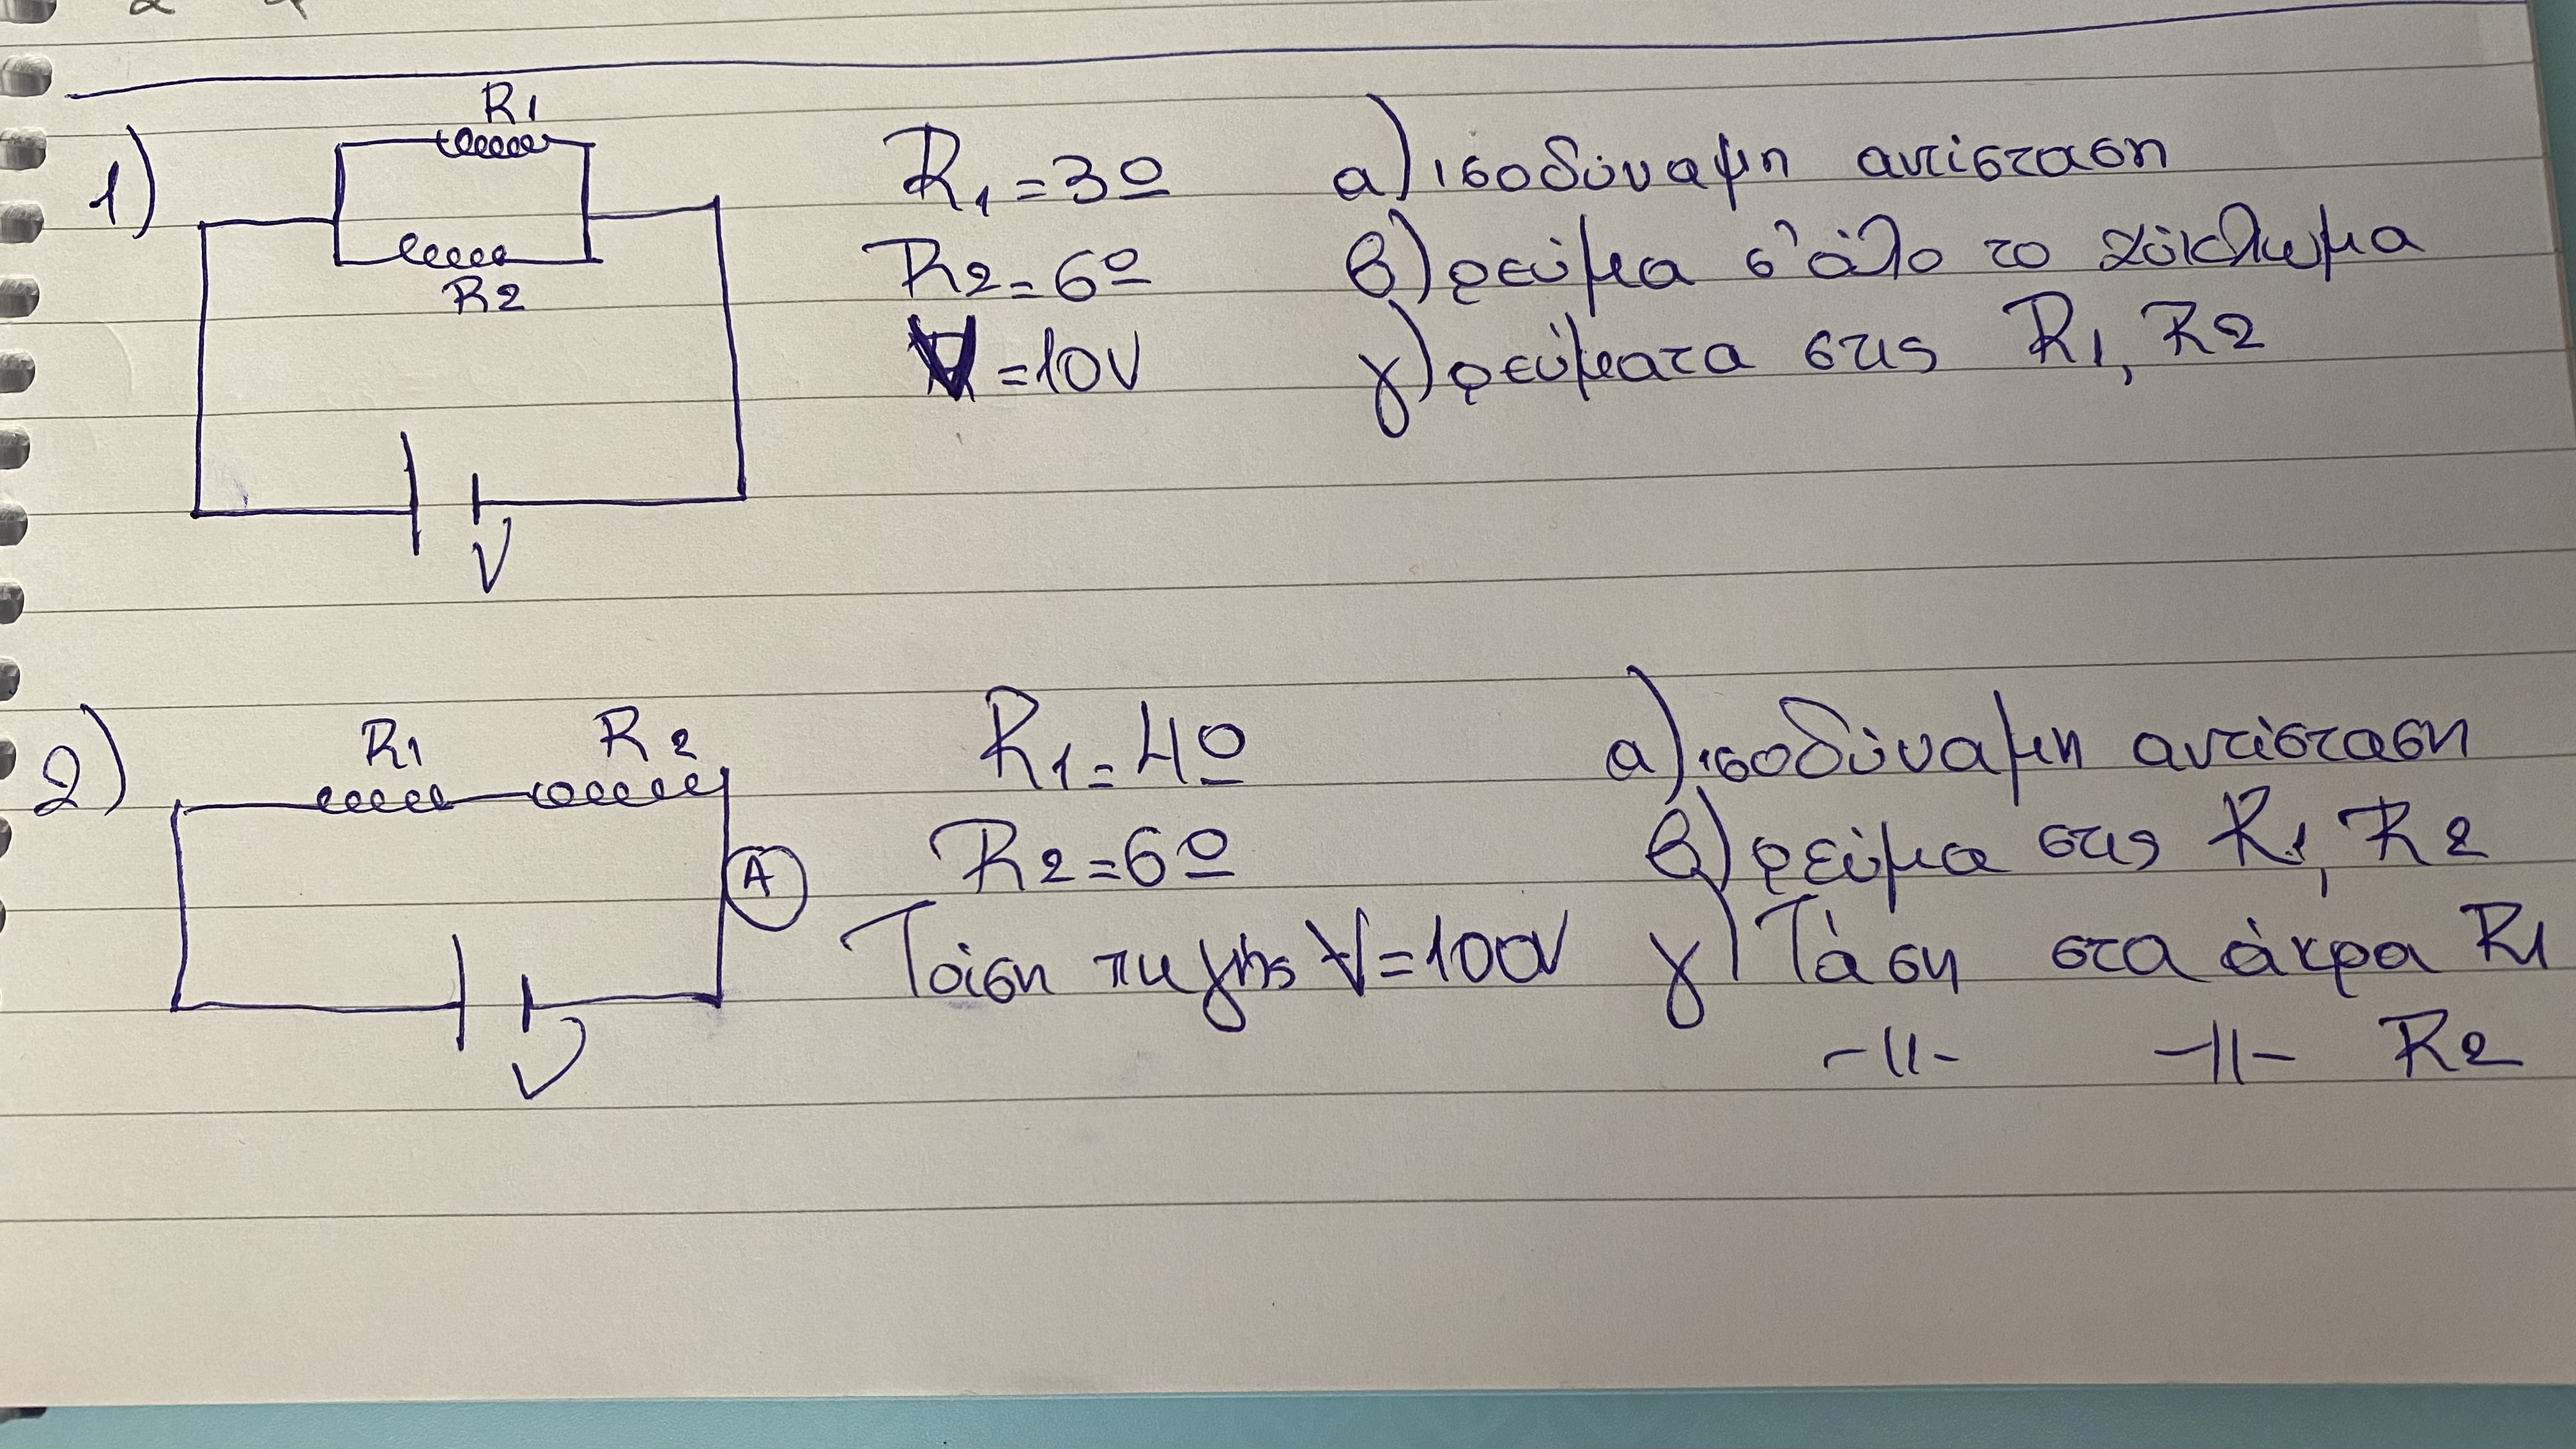 1)
R1
R2
V
R1 = 3º
R2 = 6º
V = 10V
α) ισοδύναμη αντίσταση
β) ρεύμα σ' όλο το κύκλωμα
γ) ρεύματα στις R1, R2
2)
R1 R2
A
V
R1 = 4º
R2 = 6º
Τάση πηγής V = 100V
α) ισοδύναμη αντίσταση
β) ρεύμα στις R1, R2
γ) Τάση στα άκρα R1
-||- -||- R2